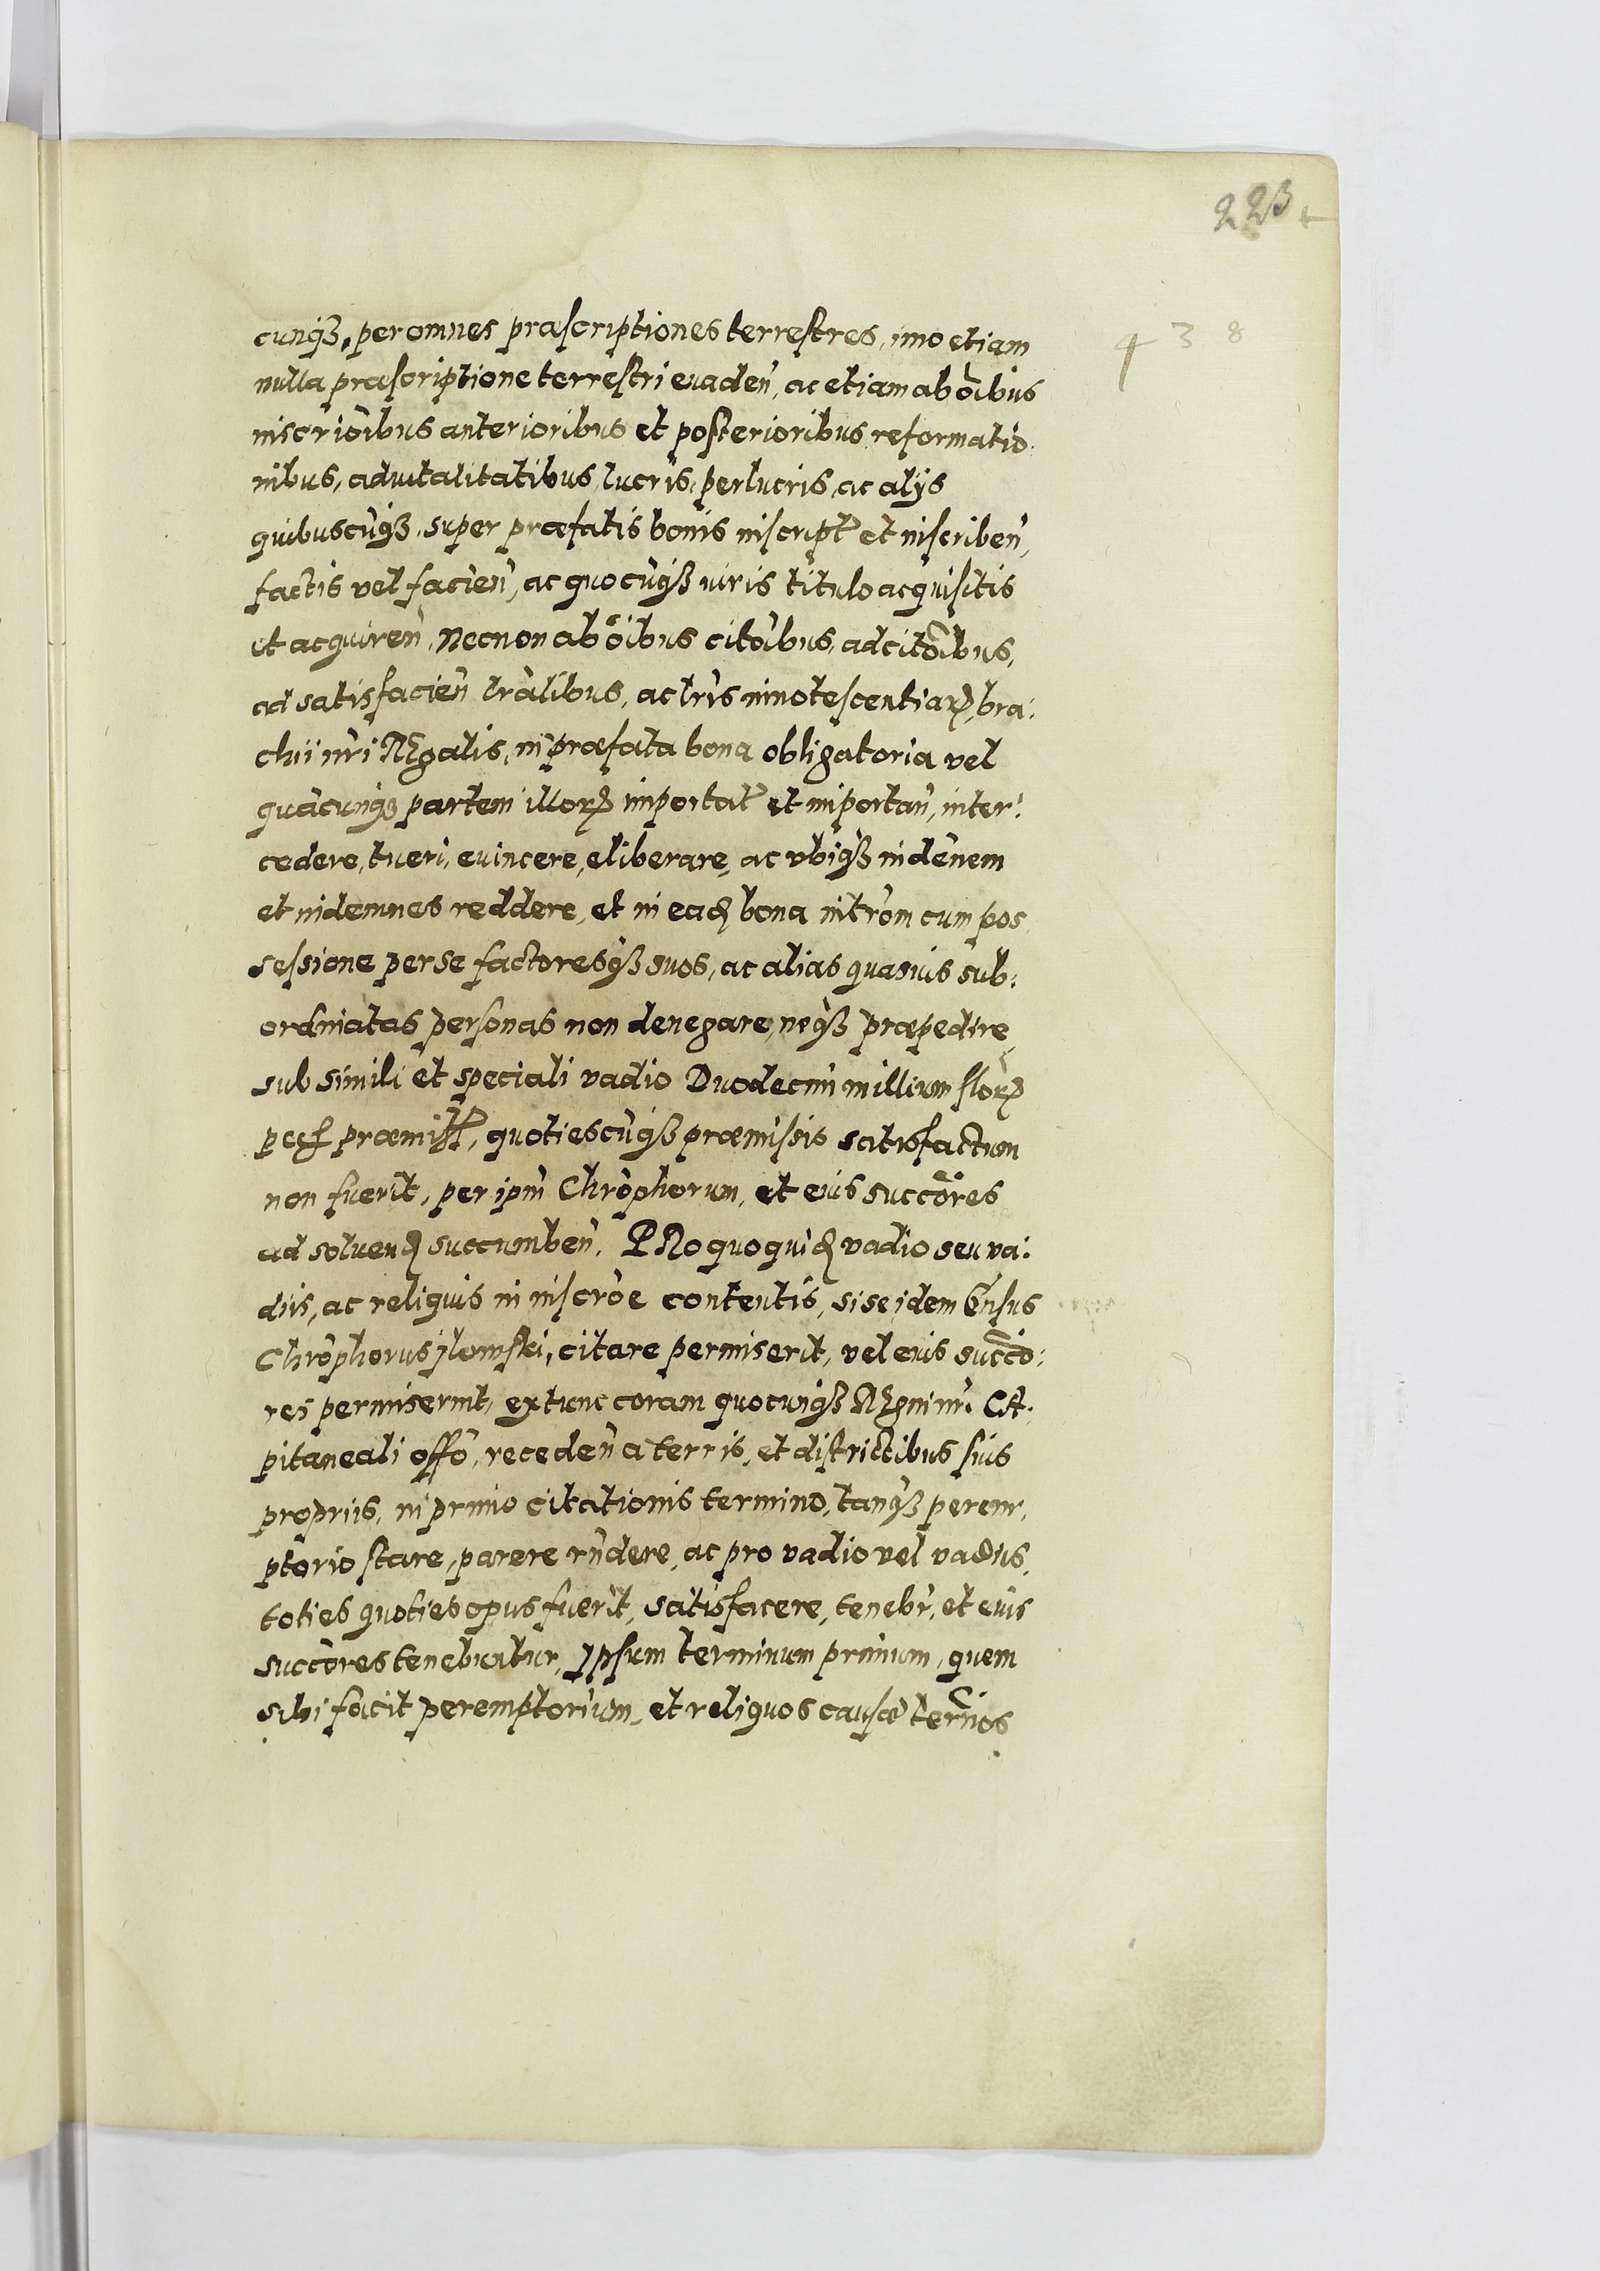 223
438
cunqȝ, per omnes præscriptiones terrestres, imo etiam
nulla præscriptione terrestri euadeñ, ac etiam ab oĩbus
inscriõibus anterioribus et posterioribus reformatio
nibus, aduitalitatibus, lucris, perlucris, ac alijs
quibuscũqȝ, super præfatis bonis inscript et inscribeñ,
factis vel facieñ, ac quocũqȝ iuris titulo acquisitis
et acquireñ, Necnon ab oĩbus citõibus, adcitõibus,
ad satisfacieñ lrãlibus, ac lrĩs innotescentiaꝝ, bra:
chii nrĩ Regalis, in præfata bona obligatoria vel
quãcunqȝ partem illoꝝ importat et importañ, inter:
cedere, tueri, euincere, eliberare, ac vbiqȝ indẽnem
et indemnes reddere, et in eadꝫ bona intrõm cum pos
sessione per se factoresqȝ suos, ac alias quasuis sub:
ordinatas personas non denegare, neqȝ præpedire
sub simili et speciali vadio Duodecim millium floꝝ
pecf præmiss, quotiescũqȝ præmissis satisfactum
non fuerit, per ipm̃ Chrõphorum, et eius succõres
ad soluendꝫ succumbeñ. PRo quo quidꝫ vadio seu va:
diis, ac reliquis in inscrõe contentis, si se idem Gñsus
Chrõphorus jlowski, citare permiserit, vel eius succo:
res permiserint, extunc coram quocunqȝ Regni nrĩ Ca:
pitaneali offõ, recedeñ a terris, et districtibus suis
propriis, in primo citationis termino, tanqȝ perem:
ptorio stare, parere rñdere, ac pro vadio vel vadiis,
toties quoties opus fuerit, satisfacere, tenebr̃, et eius
succõres tenebuntur, Ipsum terminum primum, quem
sibi facit peremptorium, et reliquos causæ ter̃nos